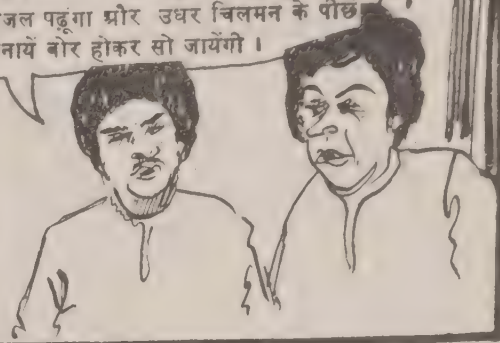 जल पढूंगा और उधर चिलमन के पीछ
नायें बोर होकर सो जायेंगी ।